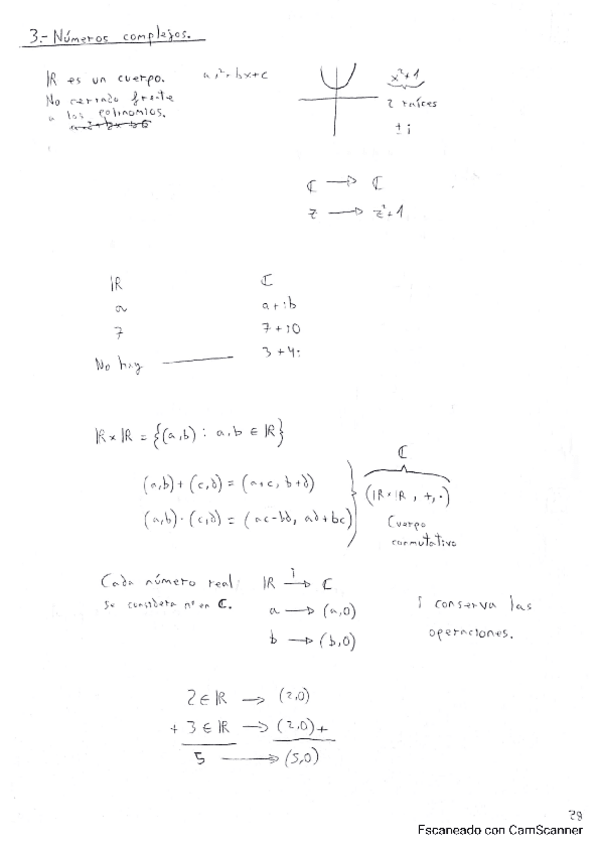 3.- Números complejos.
ℝ es un cuerpo. ax²+bx+c
No cerrado frente
a los polinomios.
x²+1
2 raíces
± i
ℂ → ℂ
z → z²+1
ℝ ℂ
a a+ib
7 7+i0
No hay —— 3+4i
ℝ×ℝ = {(a,b) : a,b ∈ ℝ}
(a,b)+(c,d) = (a+c, b+d)
(a,b)·(c,d) = (ac-bd, ad+bc)
ℂ
(ℝ×ℝ, +, ·)
Cuerpo
conmutativo
Cada número real: ℝ →i ℂ
se considera nº en ℂ. a → (a,0)
b → (b,0)
i conserva las
operaciones.
2 ∈ ℝ → (2,0)
+ 3 ∈ ℝ → (2,0) +
5 → (5,0)
28
Escaneado con CamScanner